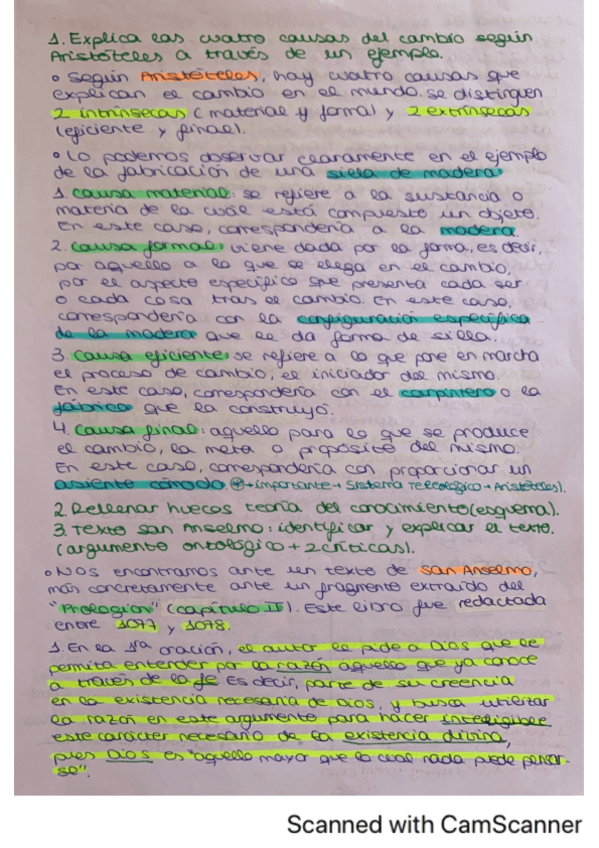 1. Explica las cuatro causas del cambio según
Aristóteles a través de un ejemplo.
o Según Aristóteles, hay cuatro causas que
explican el cambio en el mundo. se distinguen
2 intrínsecas (material y formal) y 2 extrínsecas
(eficiente y final).
o Lo podemos observar claramente en el ejemplo
de la fabricación de una silla de madera
1. causa material: se refiere a la sustancia o
materia de la cual está compuesto un objeto.
En este caso, correspondería a la madera.
2. causa formal: viene dada por la forma, es decir,
por aquello a lo que se llega en el cambio,
por el aspecto específico que presenta cada ser
o cada cosa tras el cambio. En este caso,
correspondería con la configuración específica
de la madera que le da forma de silla.
3. causa eficiente: se refiere a lo que pone en marcha
el proceso de cambio, el iniciador del mismo.
En este caso, correspondería con el carpintero o la
fábrica que la construyó.
4. causa final: aquello para lo que se produce
el cambio, la meta o propósito del mismo.
En este caso, correspondería con proporcionar un
asiento cómodo. (+importante → Sistema Teleológico → Aristóteles).
2. Rellenar huecos teoría del conocimiento (esquema).
3. Texto San Anselmo: identificar y explicar el texto.
(argumento ontológico + 2 críticas).
o Nos encontramos ante un texto de San Anselmo,
más concretamente ante un fragmento extraído del
"Proslogion" (capítulo II). Este libro fue redactada
entre 1077 y 1078.
1. En la 1ª oración, el autor le pide a Dios que le
permita entender por la razón aquello que ya conoce
a través de la fe. Es decir, parte de su creencia
en la existencia necesaria de Dios, y busca utilizar
la razón en este argumento para hacer inteligible
este carácter necesario de la existencia divina,
pues Dios es "aquello mayor que lo cual nada puede pensar-
se".
Scanned with CamScanner